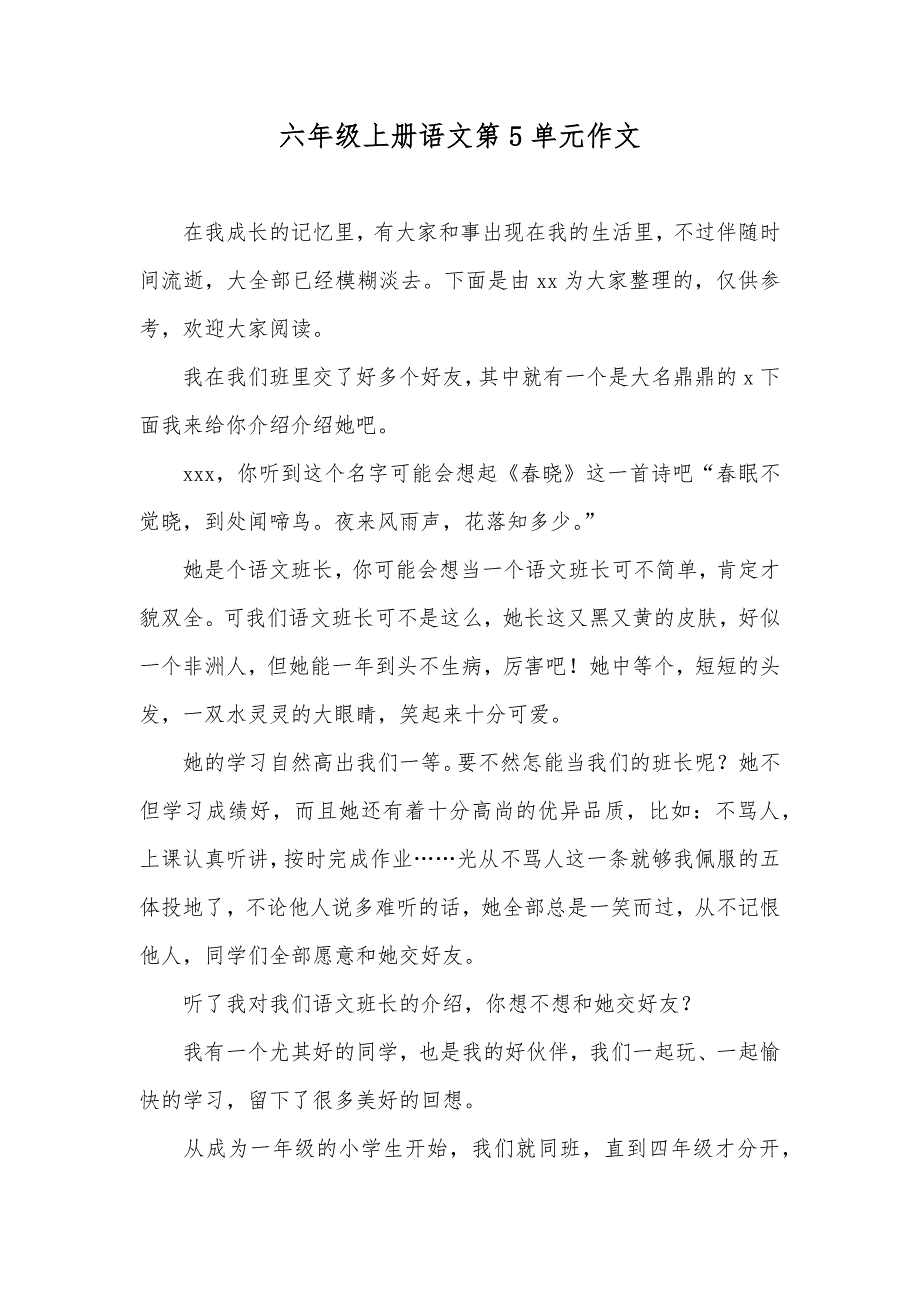 六年级上册语文第 5 单元作文
在我成长的记忆里，有大家和事出现在我的生活里，不过伴随时
间流逝，大全部已经模糊淡去。下面是由 xx 为大家整理的，仅供参
考，欢迎大家阅读。
我在我们班里交了好多个好友，其中就有一个是大名鼎鼎的 x 下
面我来给你介绍介绍她吧。
xxx，你听到这个名字可能会想起《春晓》这一首诗吧“春眠不
觉晓，到处闻啼鸟。夜来风雨声，花落知多少。”
她是个语文班长，你可能会想当一个语文班长可不简单，肯定才
貌双全。可我们语文班长可不是这么，她长这又黑又黄的皮肤，好似
一个非洲人，但她能一年到头不生病，厉害吧！她中等个，短短的头
发，一双水灵灵的大眼睛，笑起来十分可爱。
她的学习自然高出我们一等。要不然怎能当我们的班长呢？她不
但学习成绩好，而且她还有着十分高尚的优异品质，比如：不骂人，
上课认真听讲，按时完成作业……光从不骂人这一条就够我佩服的五
体投地了，不论他人说多难听的话，她全部总是一笑而过，从不记恨
他人，同学们全部愿意和她交好友。
听了我对我们语文班长的介绍，你想不想和她交好友？
我有一个尤其好的同学，也是我的好伙伴，我们一起玩、一起愉
快的学习，留下了很多美好的回想。
从成为一年级的小学生开始，我们就同班，直到四年级才分开，